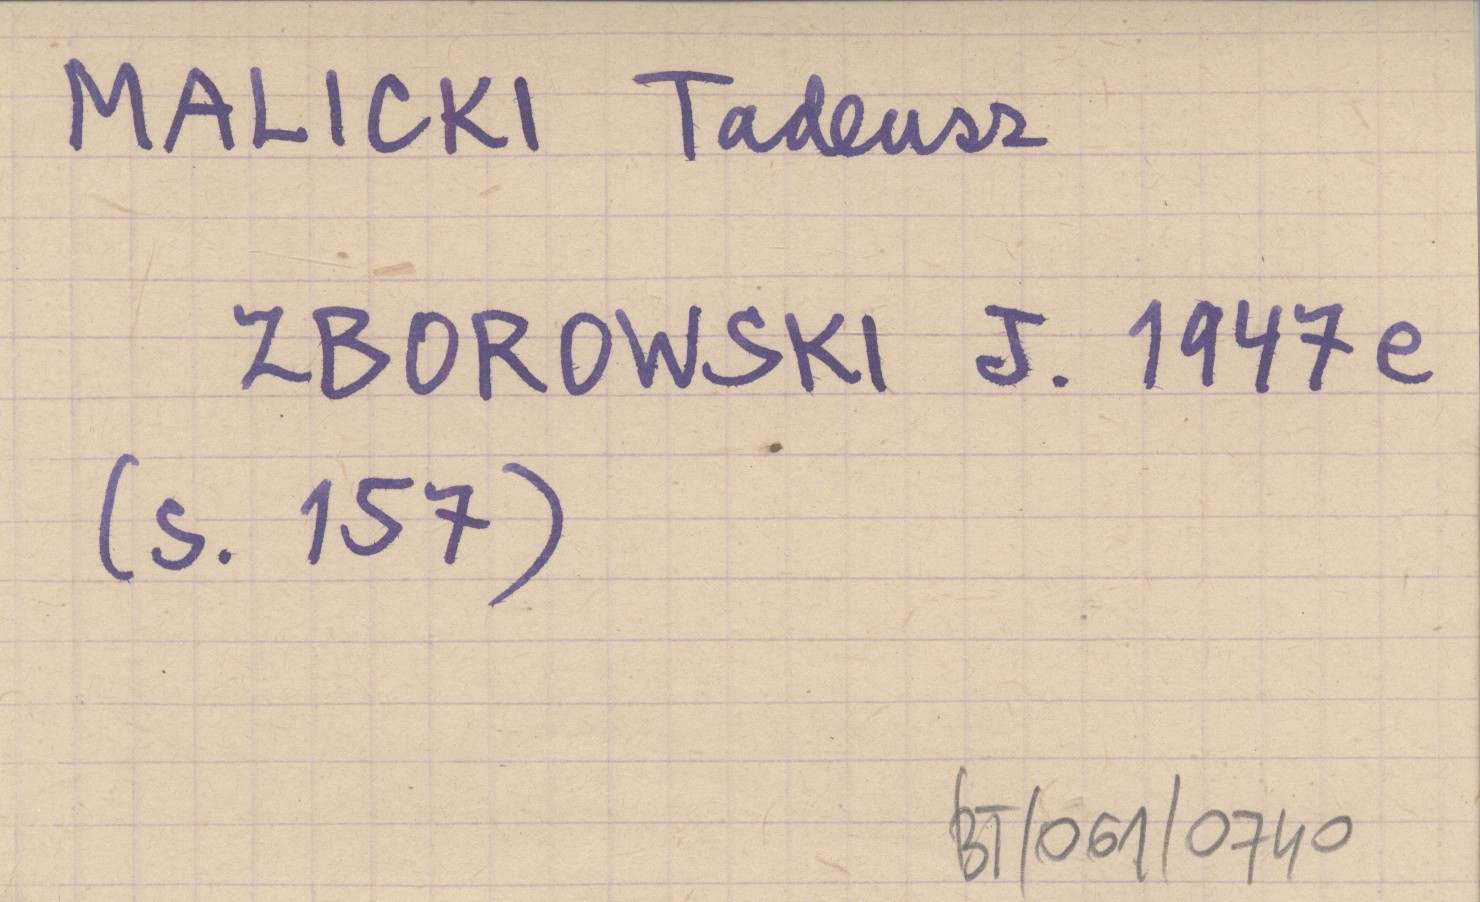 MALICKI Tadeusz
ZBOROWSKI J. 1947e
(s. 157)
BT/061/0740